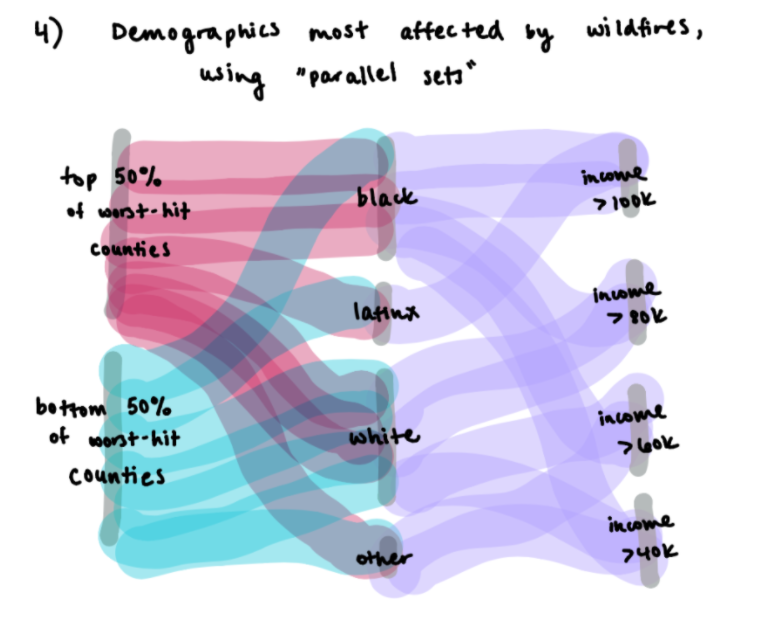 4) Demographics most affected by wildfires,
using "parallel sets"
top 50%
of worst-hit
counties
bottom 50%
of worst-hit
counties
black
latinx
white
other
income
>100k
income
>80k
income
>60k
income
>40k